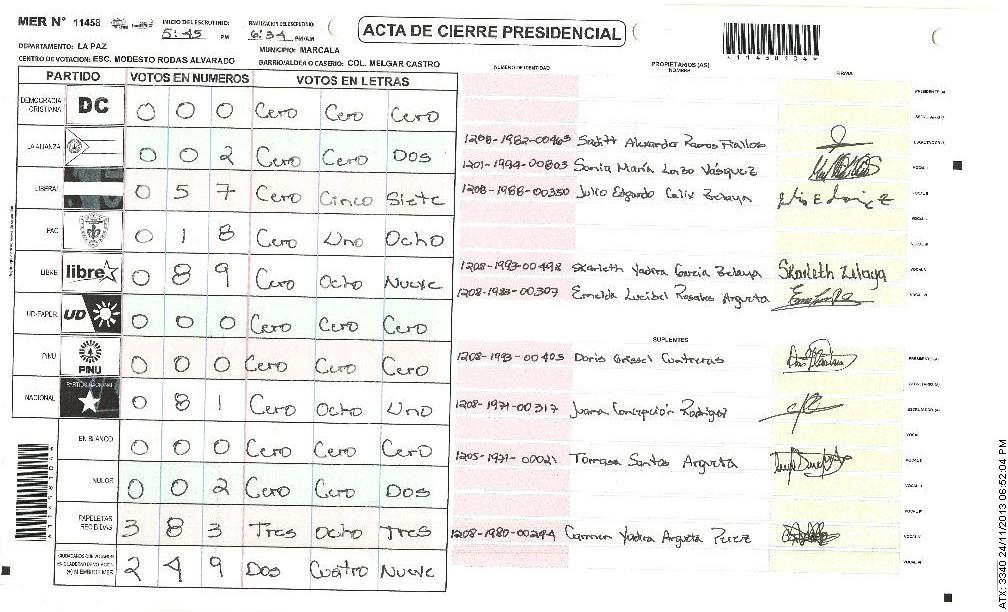 MER N° 11458
INICIO DEL ESCRUTINIO: 5:45 PM
FINALIZACION DEL ESCRUTINIO: 6:34 PM/AM
ACTA DE CIERRE PRESIDENCIAL
*114581047*
DEPARTAMENTO: LA PAZ
MUNICIPIO: MARCALA
CENTRO DE VOTACION: ESC. MODESTO RODAS ALVARADO
BARRIO/ALDEA O CASERIO: COL. MELGAR CASTRO
PARTIDO VOTOS EN NUMEROS VOTOS EN LETRAS
DEMOCRACIA CRISTIANA DC 0 0 0 Cero Cero Cero
LA ALIANZA 0 0 2 Cero Cero Dos
LIBERAL 0 5 7 Cero Cinco Siete
PAC 0 1 8 Cero Uno Ocho
LIBRE libre 0 8 9 Cero Ocho Nueve
UD-FAPER UD 0 0 0 Cero Cero Cero
PINU PINU 0 0 0 Cero Cero Cero
NACIONAL PARTIDO NACIONAL 0 8 1 Cero Ocho Uno
EN BLANCO 0 0 0 Cero Cero Cero
NULOS 0 0 2 Cero Cero Dos
PAPELETAS RECIBIDAS 3 8 3 Tres Ocho Tres
CIUDADANOS QUE VOTARON EN CUADERNO DE VOTACION (+) MIEMBROS MER 2 4 9 Dos Cuatro Nueve
NUMERO DE IDENTIDAD PROPIETARIOS (AS) NOMBRE FIRMA
PRESIDENTE (A)
1208-1982-00465 Alexander Ramos Fiallos
1201-1994-00803 Sonia María Lorzo Vásquez
1208-1988-00350 Julio Edgardo Calix Zelaya
1208-1993-00498 Skarleth Yadira Garcia Zelaya Skarleth Zelaya
1208-1983-00307 Ermelda Lucibel Rosales Argueta
SUPLENTES
1208-1993-00405 Doris Grissel Contreras PRESIDENTE (A)
SECRETARIO (A)
1208-1971-00317 Juana Concepción Rodriguez ESCRUTADOR (A)
1205-1971-00021 Tomasa Santos Argueta
1208-1980-00294 Carmen Yadira Argueta Perez
ATX: 3340 24/11/2013 06:52:04 PM